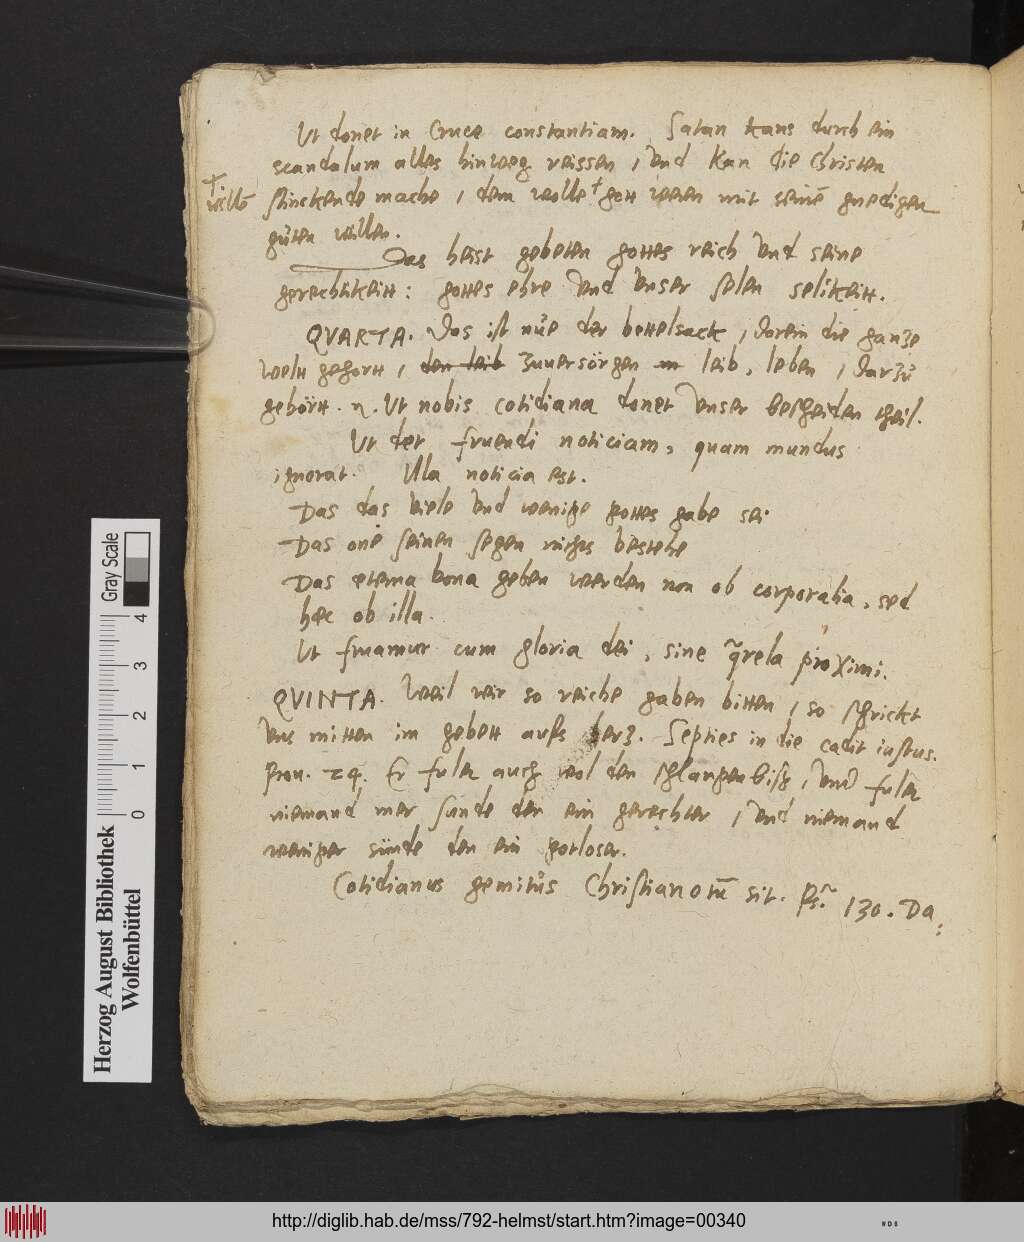 Ut donet in Cruce constantiam. Satan kans durch ein
scandalum alles hinweg reissen, vnd kan die Christen
stinckende mache, dem wolle † gott weren mit seinē gnedigen
† wille
gůten willen.
Das heist gebeten gottes reich vnd seine
gerechtikeitt: gottes ehre vnd vnser selen selikeitt.
QVARTA. Das ist nůe der bettelsack, darein die ganze
welt gehortt, den leib zuuersörgen in leib, leben, darzů
gehörtt. n. Ut nobis cotidiana donet vnser bescheiden theil.
Ut det fruendi noticiam, quam mundus
ignorat. Illa noticia est.
Das das viele vnd wenige gottes gabe sei
Das one seinen segen nichts bestehe
Das æterna bona geben werden non ob corporalia, sed
hæc ob illa.
Ut fruamur cum gloria dei, sine q̃rela proximi.
QVINTA. Weil wir so reiche gaben bitten, so schrickt
vns mitten im gebett aufs herz. Septies in die cadit iustus.
Prou. 24. Er fulet auch wol den schlangenbisß, vnd fulet
niemand mer sunde den ein gerechter, vnd niemand
weniger sünde den ein gotloser.
Cotidianus gemitůs Christianorū sit. Ps. 130. Da
Herzog August Bibliothek
Wolfenbüttel
0 1 2 3 4
Gray Scale
http://diglib.hab.de/mss/792-helmst/start.htm?image=00340